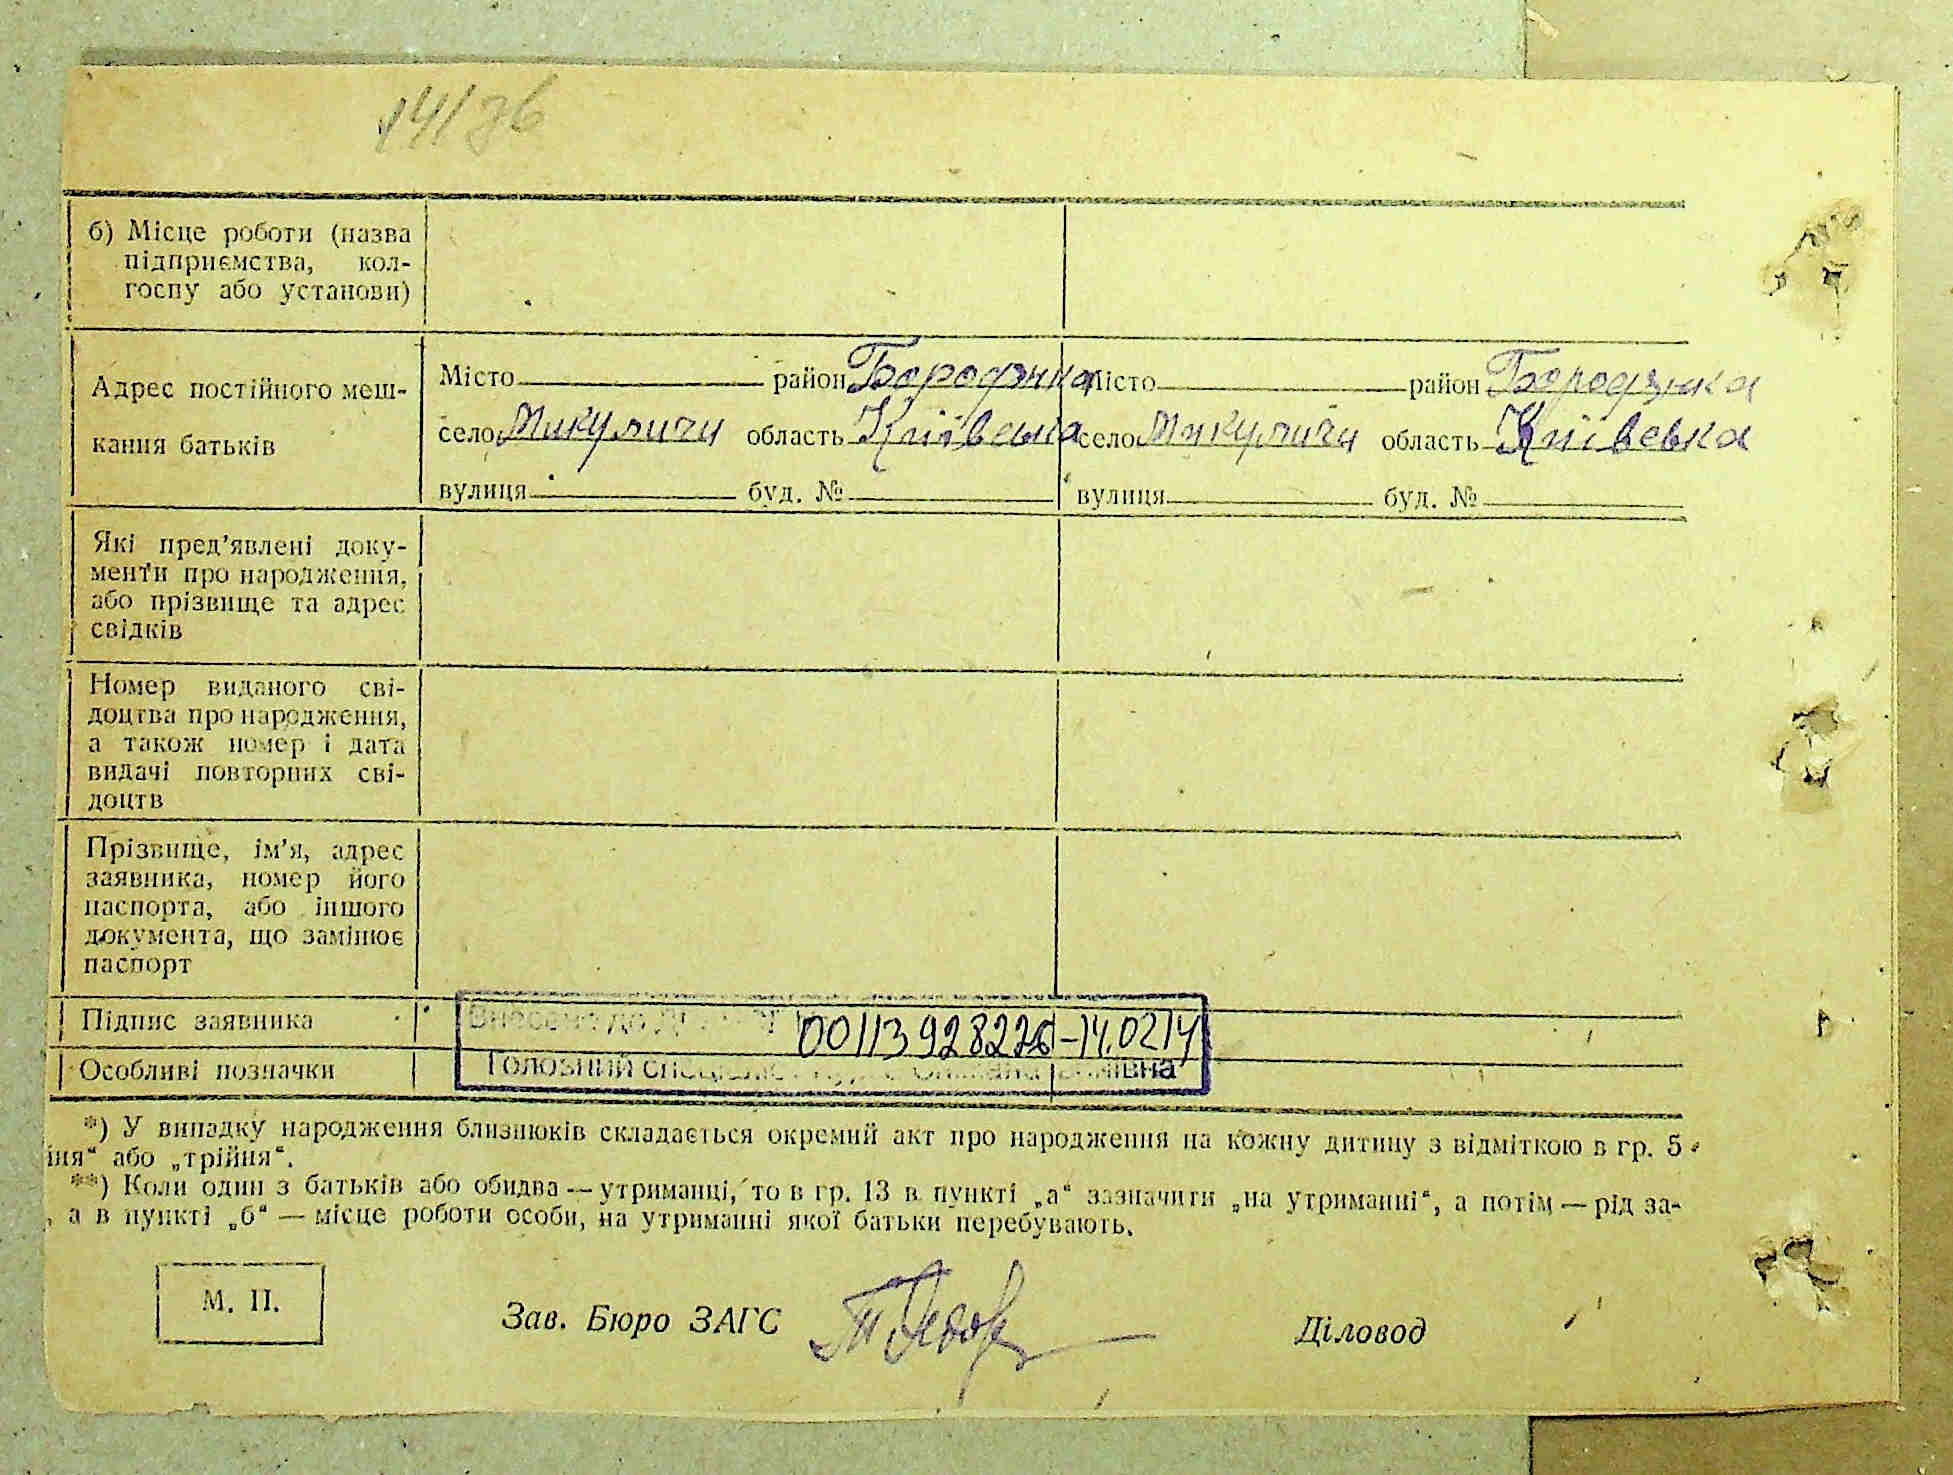 б) Місце роботи (назва
підприємства, кол-
госпу або установи)
Адрес постійного меш-
кання батьків
Місто район Бородянка Місто район Бородянка
село Микуличи область Київська село Микуличи область Київська
вулиця буд. № вулиця буд. №
Які пред'явлені доку-
менти про народження,
або прізвище та адрес
свідків
Номер виданого сві-
доцтва про народження,
а також номер і дата
видачі повторних сві-
доцтв
Прізвище, ім'я, адрес
заявника, номер його
паспорта, або іншого
документа, що замінює
паспорт
Підпис заявника
Внесено до
-14.0214
Особливі позначки
Головний
*) У випадку народження близнюків складається окремий акт про народження на кожну дитину з відміткою в гр. 5
йня“ або „трійня“.
**) Коли один з батьків або обидва — утриманці, то в гр. 13 в пункті „а“ зазначити „на утриманні“, а потім — рід за-
, а в пункті „б“ — місце роботи особи, на утриманні якої батьки перебувають.
М. П.
Зав. Бюро ЗАГС
Діловод